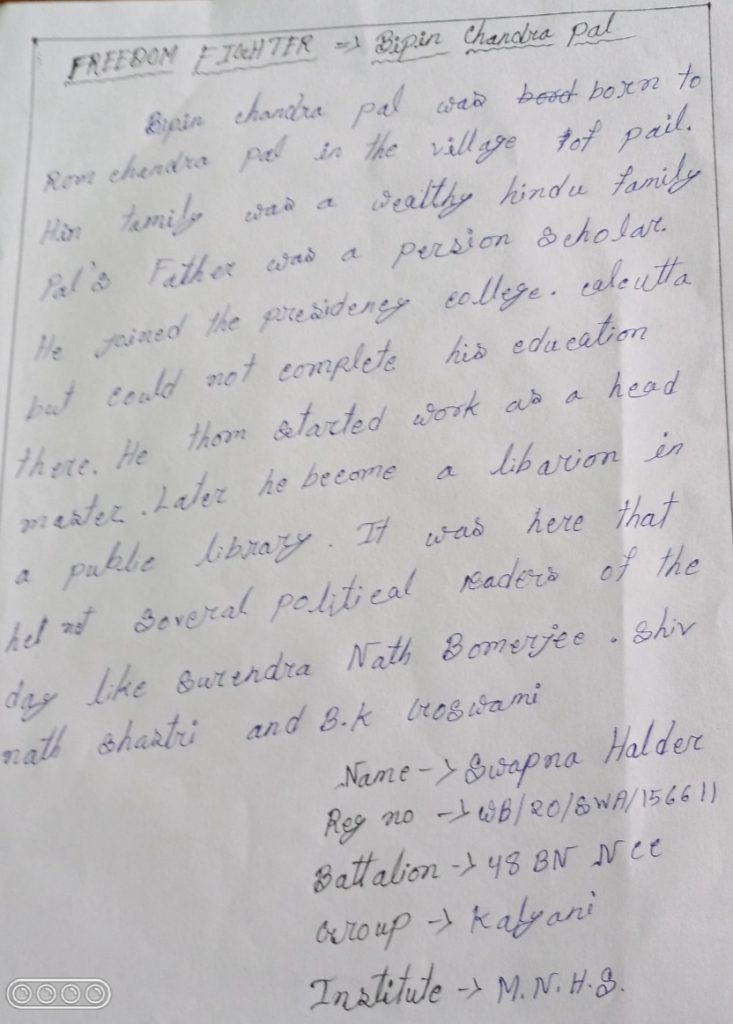 FREEDOM FIGHTER => Bipin Chandra Pal
Bipin chandra pal was born to
Rom chandra pal in the village of pail.
Hin family was a wealthy hindu family
Pal's Father was a persion scholar.
He joined the presidency college. calcutta
but could not complete his education
there. He thom started work as a head
master. Later he become a libarion in
a public library. It was here that
several political readers of the
day like Surendra Nath Bomerjee. Shiv
nath Shastri and B.K Goswami
Name -> Swapna Halder
Reg no -> WB/20/SWA/156611
Battalion -> 48 BN NCC
Group -> Kalyani
Institute -> M.N.H.S.